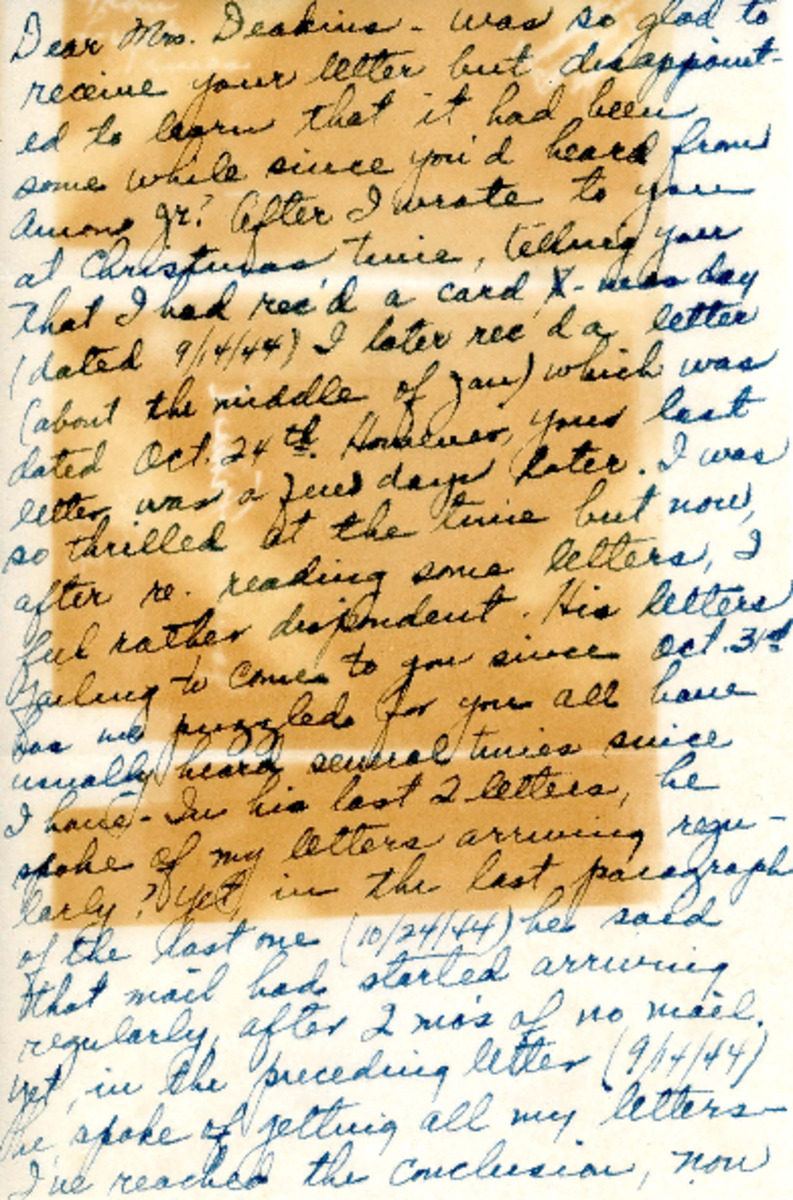 Dear Mrs. Deakins - was so glad to
receive your letter but disappoint-
ed to learn that it had been
some while since you'd heard from
Amons Jr? After I wrote to you
at Christmas time, telling you
that I had rec'd a card X-mas day
(dated 9/14/44) I later rec'd a letter
(about the middle of Jan) which was
dated Oct. 24th. However, your last
letter was a few days later. I was
so thrilled at the time but now,
after re-reading some letters, I
feel rather dispondent. His letters
failing to come to you since Oct. 31st
has me puzzled for you all have
usually heard several times since
I have - In his last 2 letters, he
spoke of my letters arriving regu-
larly? Yet, in the last paragraph
of the last one (10/24/44) he said
that mail had started arriving
regularly, after 2 mo's of no mail.
Yet, in the preceding letter (9/14/44)
he spoke of getting all my letters -
I've reached the conclusion, now